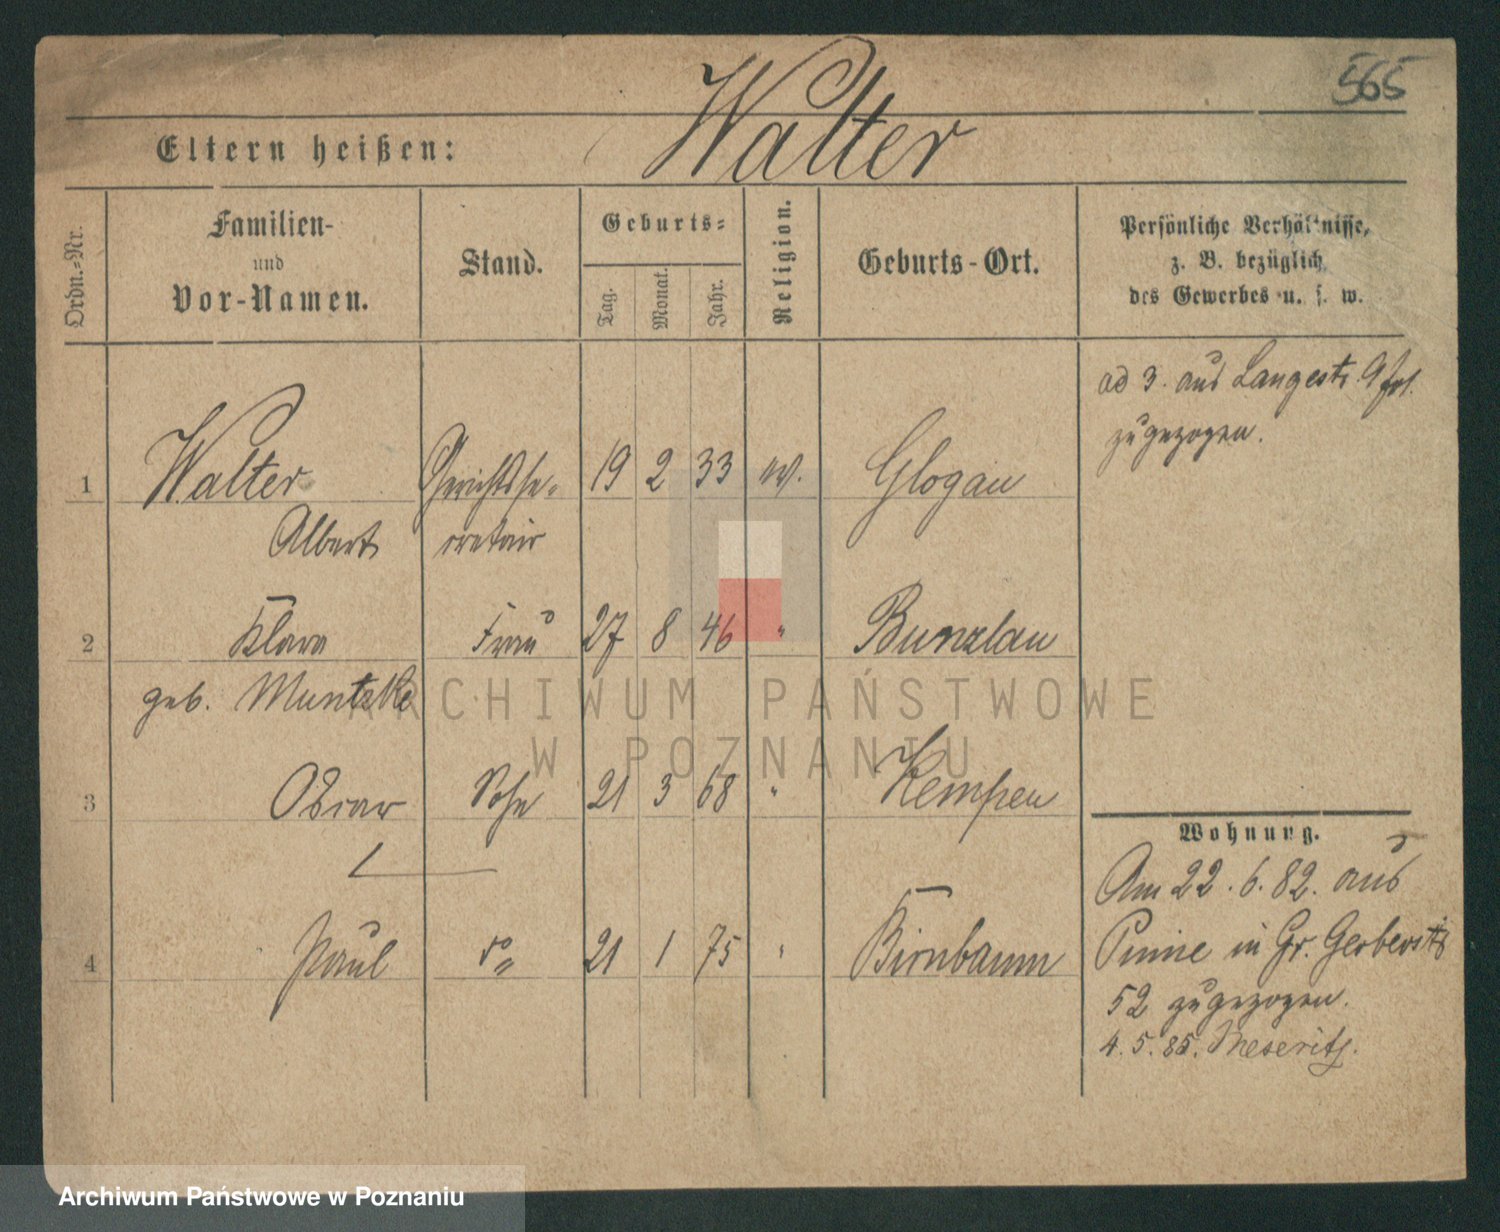 565
Eltern heißen: Walter
Ordn.-Nr.
Familien-
und
Vor-Namen.
Stand.
Geburts-
Tag.
Monat.
Jahr.
Religion.
Geburts-Ort.
Persönliche Verhältnisse,
z. B. bezüglich
des Gewerbes u. s. w.
ad 3. aus Langestr. 9
zugezogen.
1 Walter Gerichtsse- 19 2 33 ev. Glogau
Albert cretair
2 Klara Frau 27 8 46 " Bunzlau
geb. Muntzke
3 Oscar Sohn 21 3 68 " Kempen
4 Paul do " 21 1 75 " Birnbaum
Wohnung.
Am 22. 6. 82. aus
Pinne in Gr. Gerberstr
52 zugezogen.
4. 5. 85. Meseritz.
ARCHIWUM PAŃSTWOWE
W POZNANIU
Archiwum Państwowe w Poznaniu